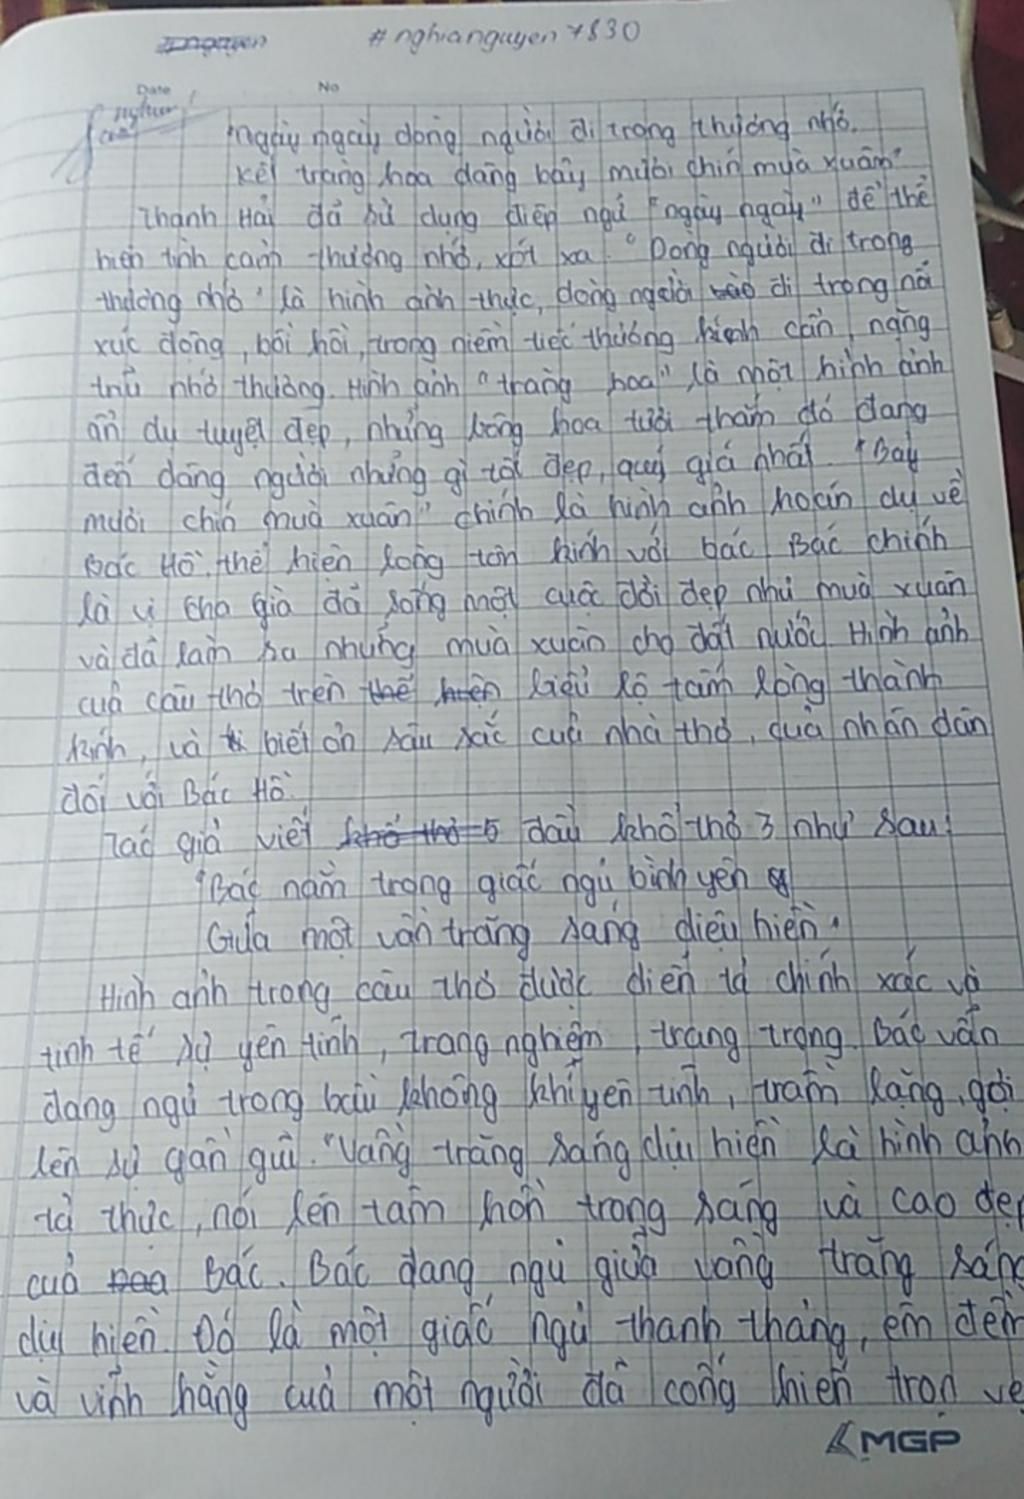 #nghianguyen7830
Date
No
"ngày ngày dòng người đi trong thương nhớ.
Kết tràng hoa dâng bảy mươi chín mùa xuân"
Thanh Hải đã sử dụng điệp ngữ "ngày ngày" để thể
hiện tình cảm thương nhớ, xót xa. "Dòng người đi trong
thương nhớ" là hình ảnh thực, dòng người đi trong nỗi
xúc động, bồi hồi, trong niềm tiếc thương kính cẩn, nặng
trĩu nhớ thương. Hình ảnh "tràng hoa" là một hình ảnh
ẩn dụ tuyệt đẹp, những bông hoa tươi thắm đó đang
đến dâng người những gì tốt đẹp, quý giá nhất. "Bảy
mươi chín mùa xuân" chính là hình ảnh hoán dụ về
Bác Hồ. thể hiện lòng tôn kính với bác. Bác chính
là vị cha già đã sống một cuộc đời đẹp như mùa xuân
và đã làm ra những mùa xuân cho đất nước. Hình ảnh
của câu thơ trên biểu lộ tấm lòng thành
kính, và biết ơn sâu sắc của nhà thơ, của nhân dân
đối với Bác Hồ.
Tác giả viết khổ thơ 5 đầu khổ thơ 3 như sau:
"Bác nằm trong giấc ngủ bình yên
Giữa một vầng trăng sáng diệu hiền"
Hình ảnh trong câu thơ được diễn tả chính xác và
tinh tế sự yên tĩnh, trang nghiêm, trang trọng. Bác vẫn
đang ngủ trong bầu không khí yên tĩnh, trầm lặng, gợi
lên sự gần gũi. "Vầng trăng sáng dịu hiền là hình ảnh
tả thực, nói lên tâm hồn trong sáng và cao đẹp
của Bác. Bác đang ngủ giữa vầng trăng sáng
dịu hiền. Đó là một giấc ngủ thanh thảng, êm đềm
và vĩnh hằng của một người đã cống hiến trọn vẹ
MGP